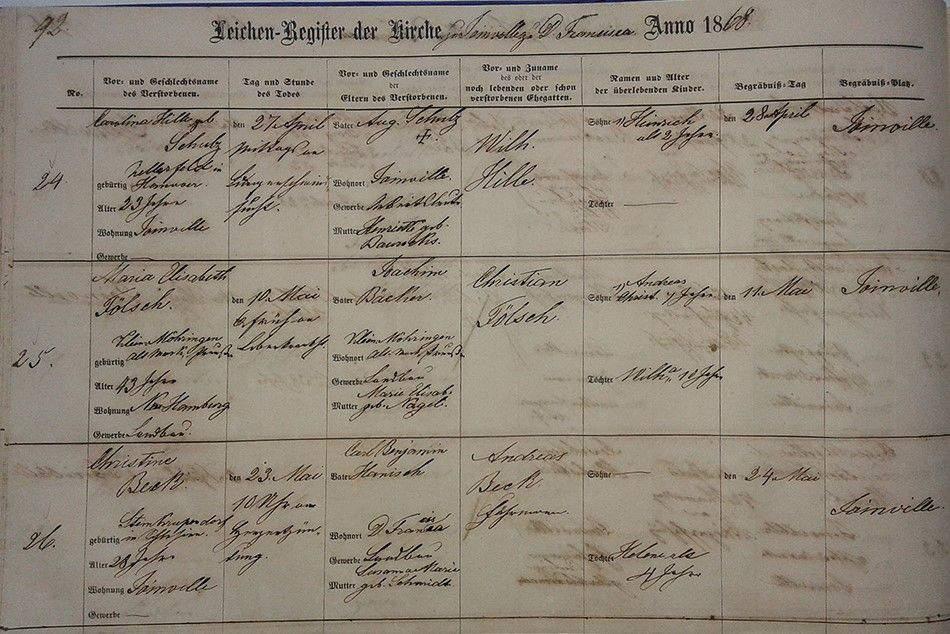 92.
Leichen-Register der Kirche zu Joinville, D. Francisca Anno 1868.
No.
Vor- und Geschlechtsname
des Verstorbenen.
Tag und Stunde
des Todes
Vor- und Geschlechtsname
der
Eltern des Verstorbenen.
Vor- und Zuname
des oder der
noch lebenden oder schon
verstorbenen Ehegatten.
Namen und Alter
der überlebenden Kinder.
Begräbniß-Tag
Begräbniß-Platz.
24.
Carolina Hille geb
Schulz
Zellerfeld in
gebürtig Hannover.
Alter 23 Jahre
Wohnung Joinville
Gewerbe —
den 27 April
Mittags an
Vater Aug. Schulz
✝
Wohnort Joinville.
Gewerbe
Mutter Henriette geb.
Wilh.
Hille.
Söhne 1) Heinrich
alt 2 Jahre.
Töchter —
den 28 April
Joinville.
25.
Maria Elisabeth
Tölsch.
Klein Möhringen
gebürtig
Alter 43 Jahre
Wohnung Neu Hamburg
Gewerbe Landbau.
den 10. Mai
6 früh an
Joachim
Vater Bächer.
Klein Möhringen
Wohnort
Gewerbe Landbau
Marie Elisab.
Mutter geb. Nagel.
Christian
Tölsch.
1) Andreas
Söhne Christ. 7 Jahr.
Töchter Wilh. 18 Jahr
den 11. Mai
Joinville,
26.
Christine
Beck.
gebürtig
Alter 28 Jahr
Wohnung Joinville
Gewerbe —
den 23. Mai
10 Uhr an
Herzentzün-
dung.
Carl Benjamin
Vater Hanisch
Wohnort D. Francisca
Gewerbe Landbau
Susanna Marie
Mutter geb. Schmidt.
Andreas
Beck
Fuhrmann.
Söhne —
Töchter Helene alt
4 Jahr
den 24. Mai
Joinville.